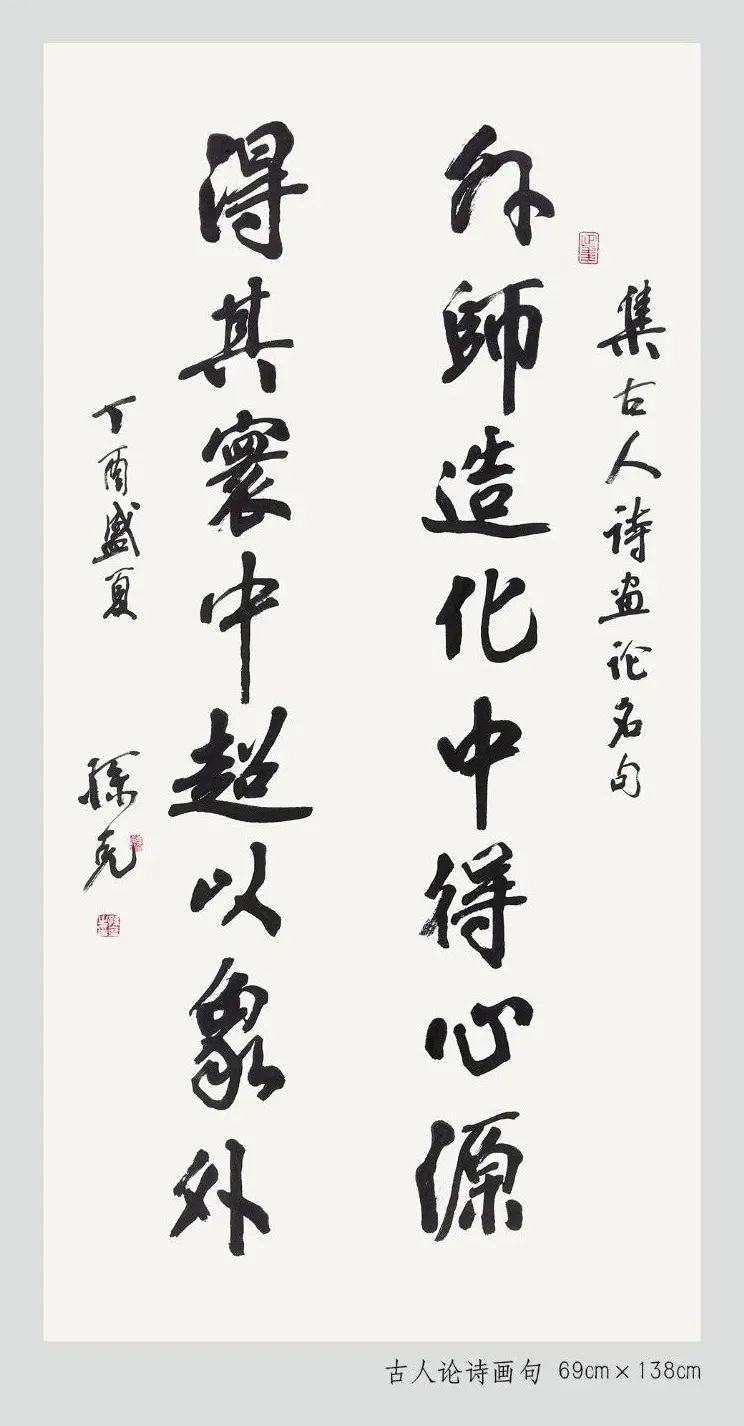 集古人诗画论名句
外師造化中得心源
得其寰中超以象外
丁酉盛夏
孫克
古人论诗画句 69cm×138cm